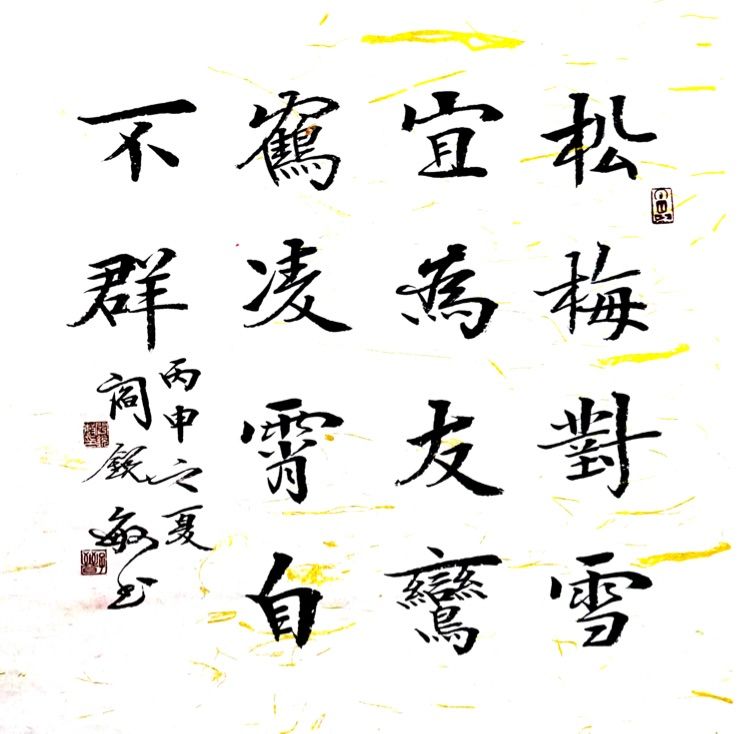 松梅對雪
宜為友鸞
鶴凌霄自
不群
丙申之夏
閻銳敏书